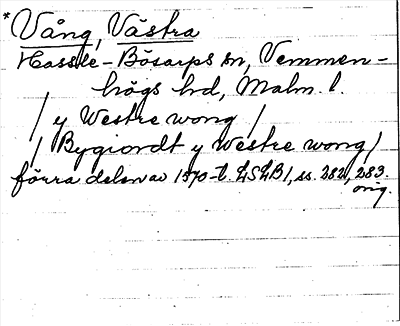 * Vång, Västra
Hassle-Bösarps sn, Vemmen-
högs hd, Malm. l.
/ y Westre wong /
/ Bygiordt y westre wong /
förra delen av 1570-t. LSLB 1, ss. 282, 283.
orig.